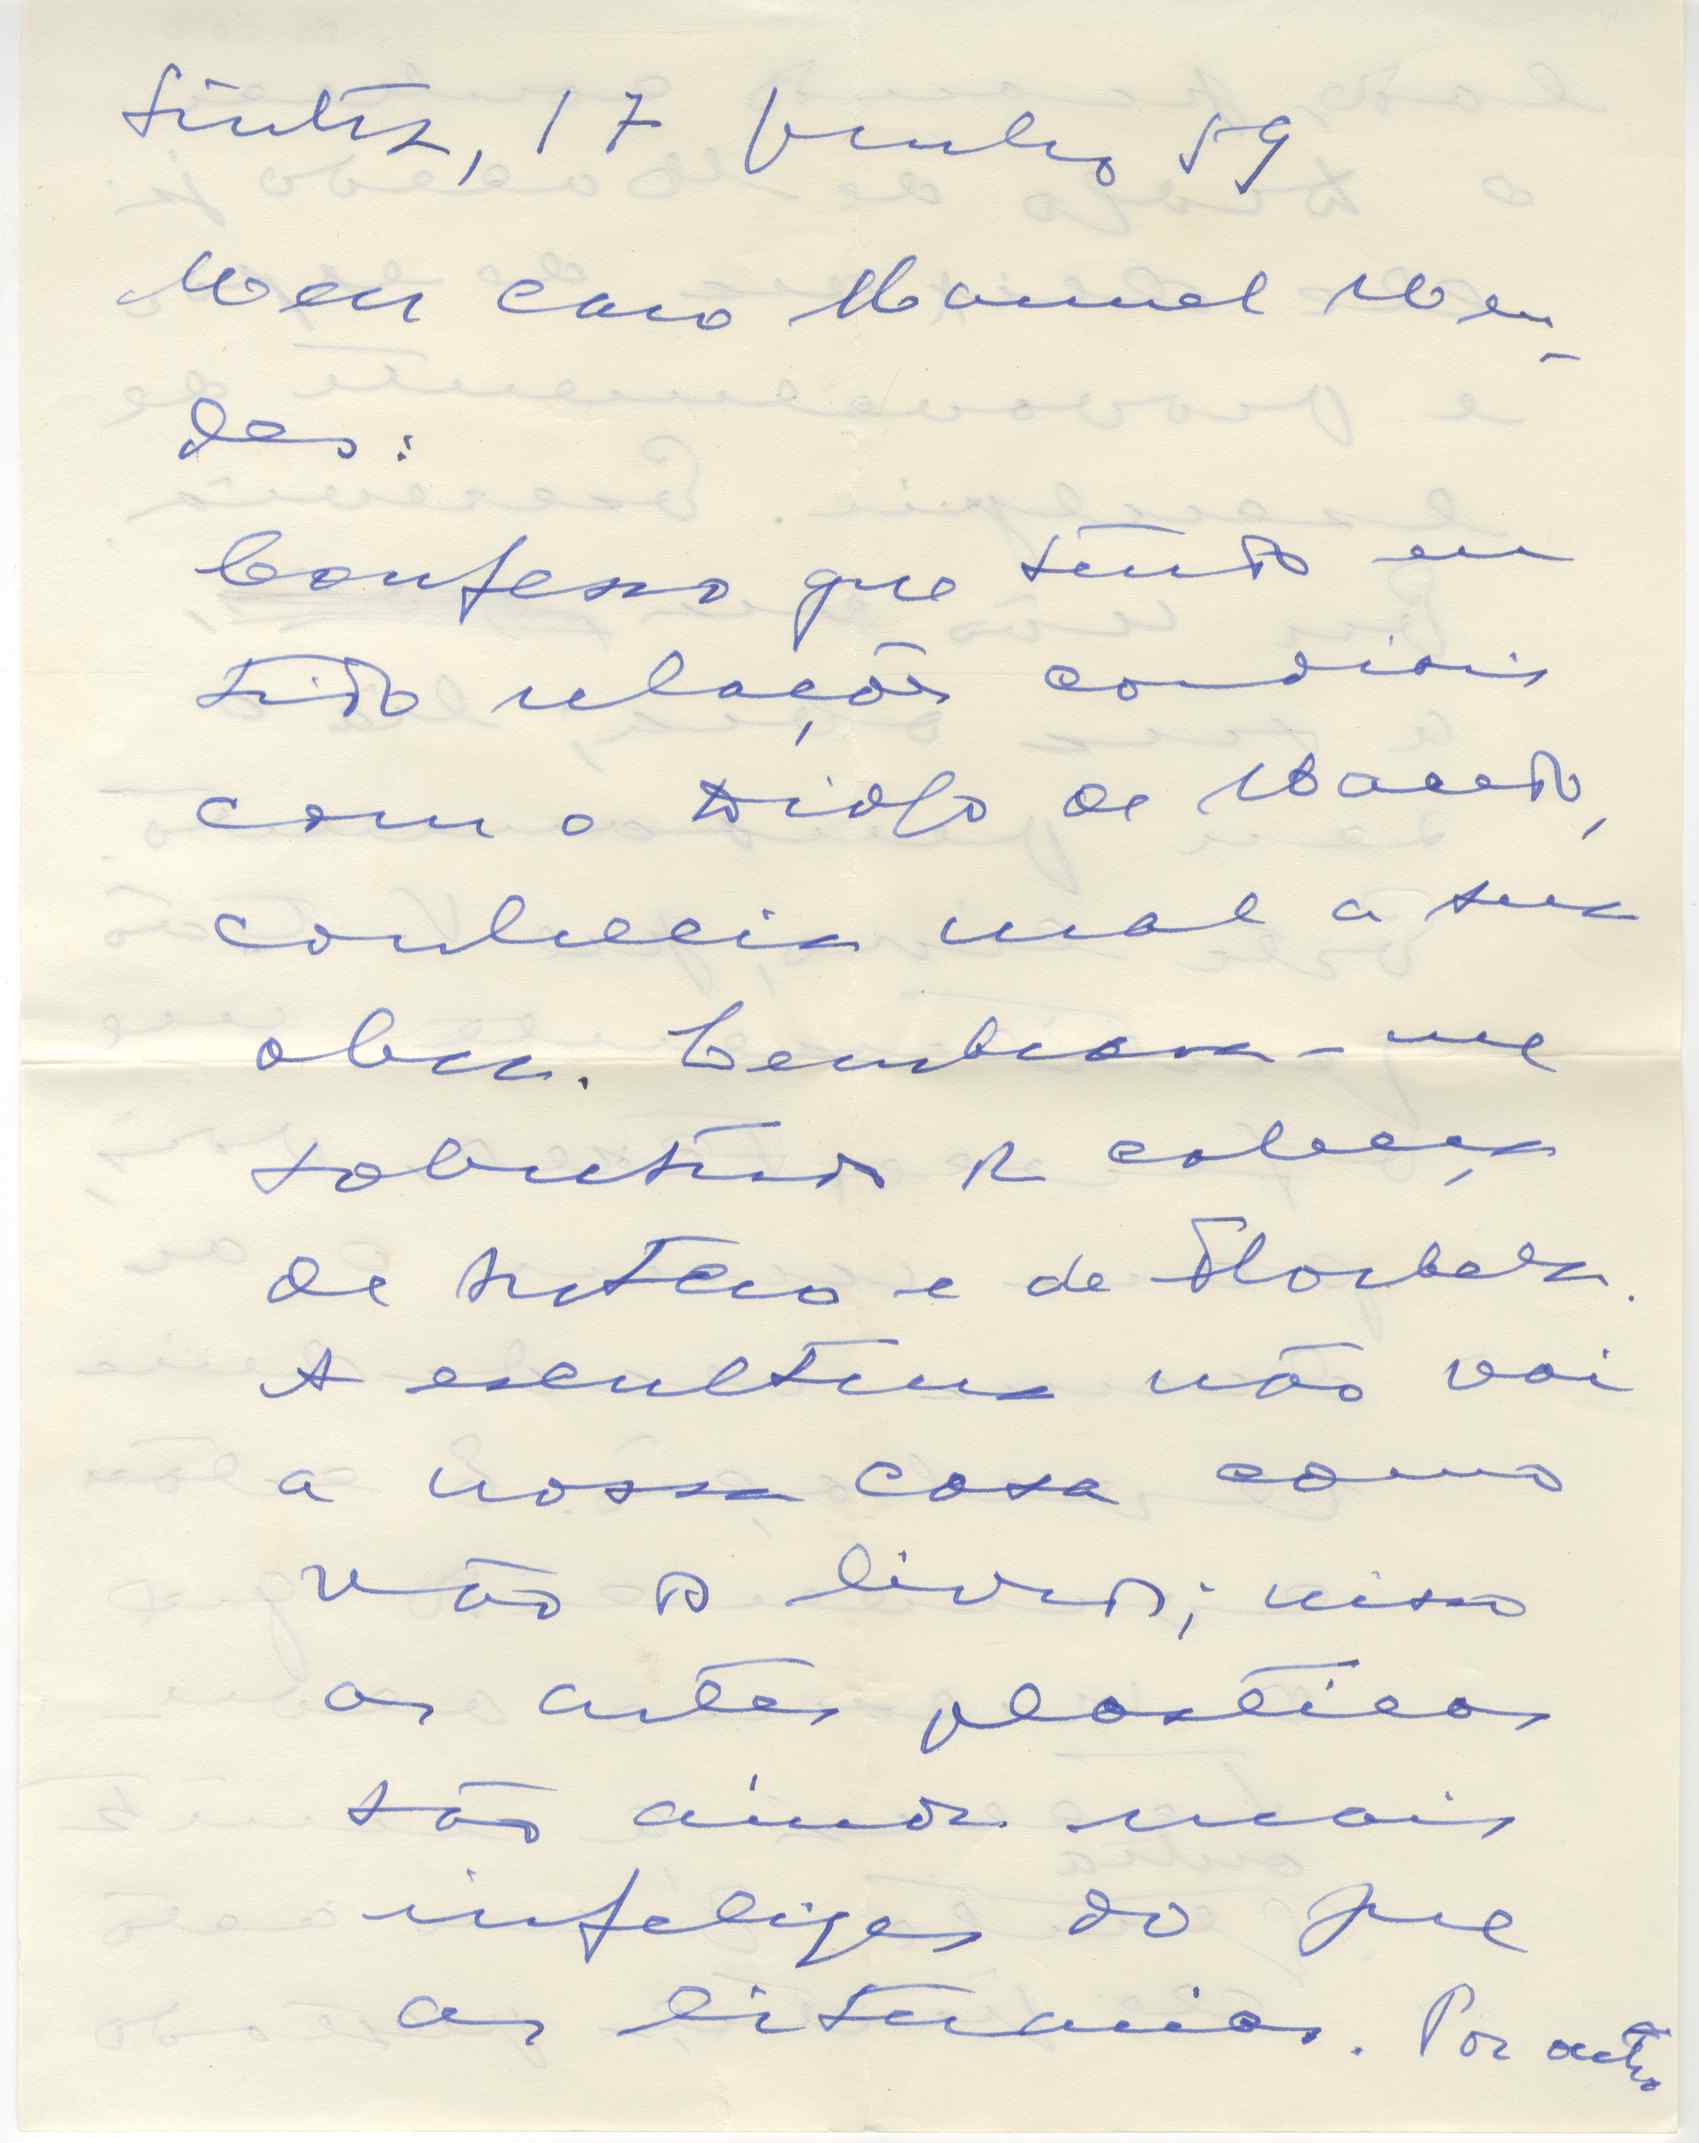 Sintra, 17 Junho 59
Meu caro Manuel Men-
des:
Confesso que tendo eu
tido relações cordiais
com o Diogo de Macedo,
conhecia mal a sua
obra. Lembrava-me
sobretudo a cabeça
de Antero e de Florbela.
A escultura não vai
a nossa casa como
vão os livros; nisso
as artes plásticas
são ainda mais
infelizes do que
as literarias. Por outro